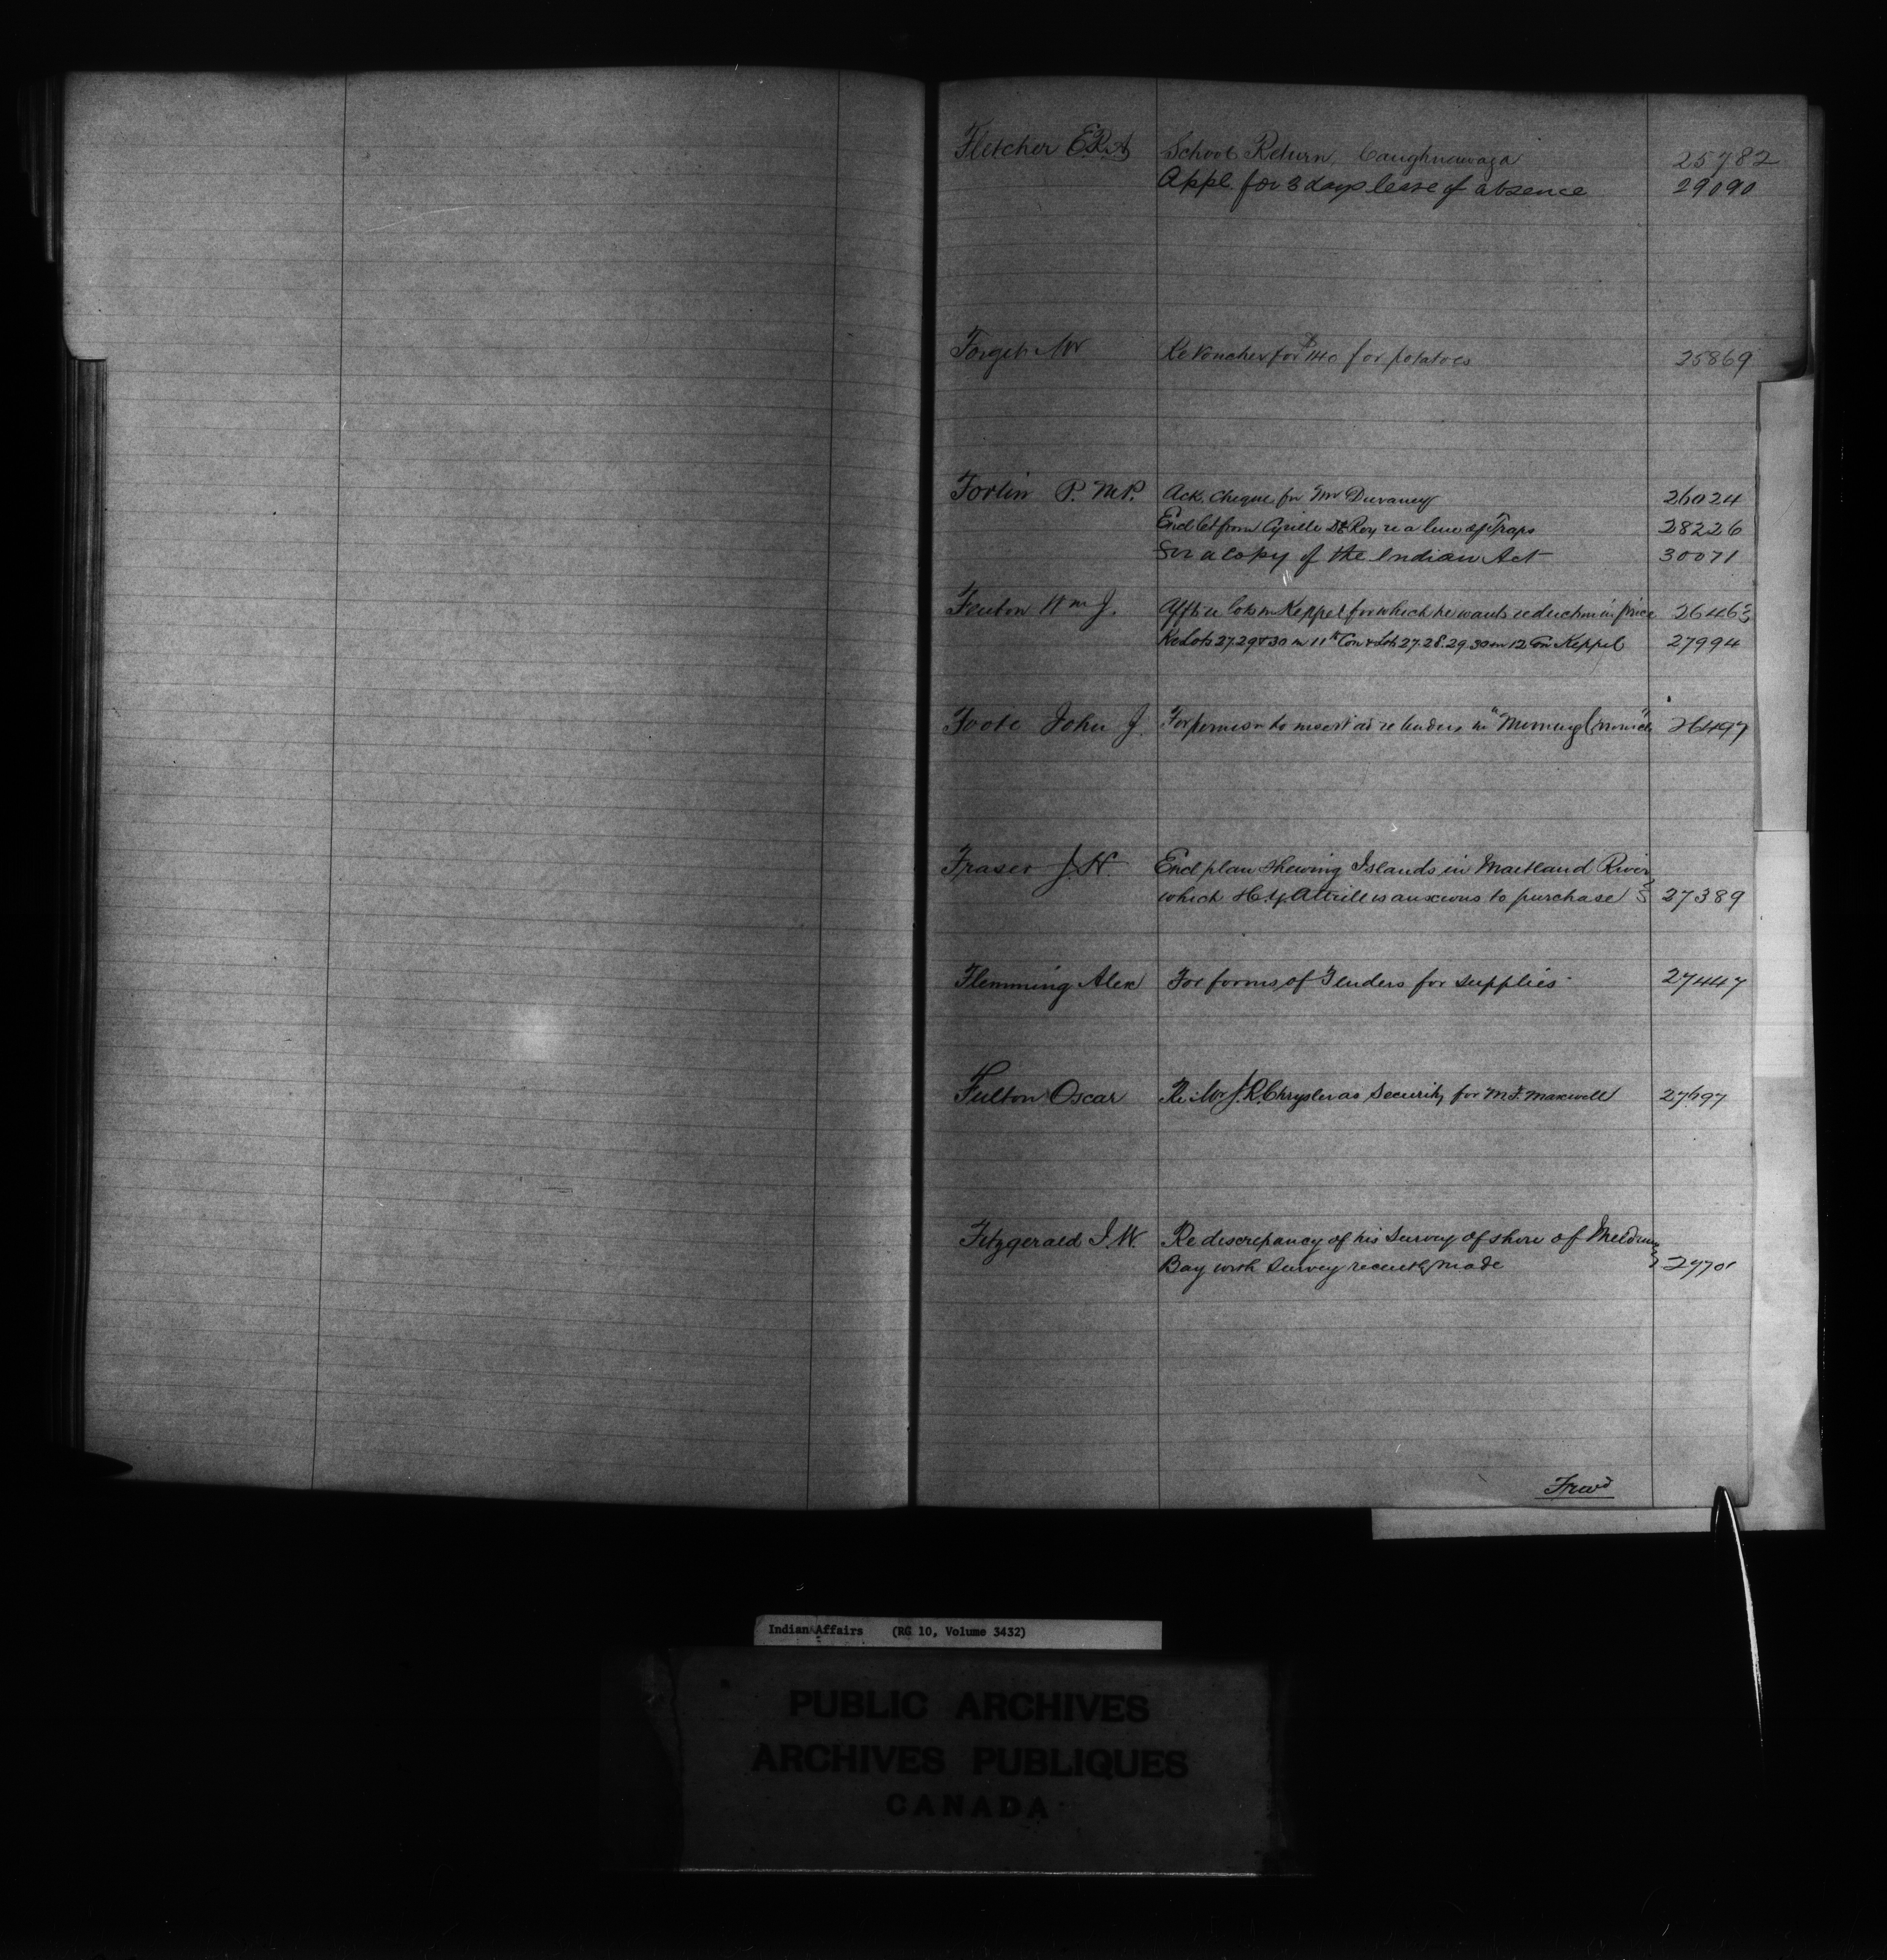 Fletcher E.R.A School Return, Caughnawaga 25782
Appl. for 3 days leave of absence 29090
Forget Mr Re Voucher for $140 for potatoes 25869
Fortin P. M.P. Ack. Cheque for Mr Duvaney 26024
Encl let from Cyrille Roy re a lease of Traps 28226
For a copy of the Indian Act 30071
Fenton Wm J. Aff re lots in Keppel for which he wants reduction in price 26463
Re Lots 27.29 & 30 in 11th Con & Lots 27.28.29.30 in 12 Con Keppel 27994
Foote John J. For permis'n to insert ad re tenders in "Morning Chronicle" 26497
Fraser J.H. Encl plan shewing Islands in Maitland River
which H.Y. Attrill is anxious to purchase 27389
Flemming Alex For forms of Tenders for supplies 27447
Fulton Oscar Re: Mr J.R. Chrysler as Security for M.F. Maxwell 27697
Fitzgerald J.W. Re discrepancy of his Survey of shore of Meldrum
Bay with Survey recently made 27701
Frwd
Indian Affairs (RG 10, Volume 3432)
PUBLIC ARCHIVES
ARCHIVES PUBLIQUES
CANADA